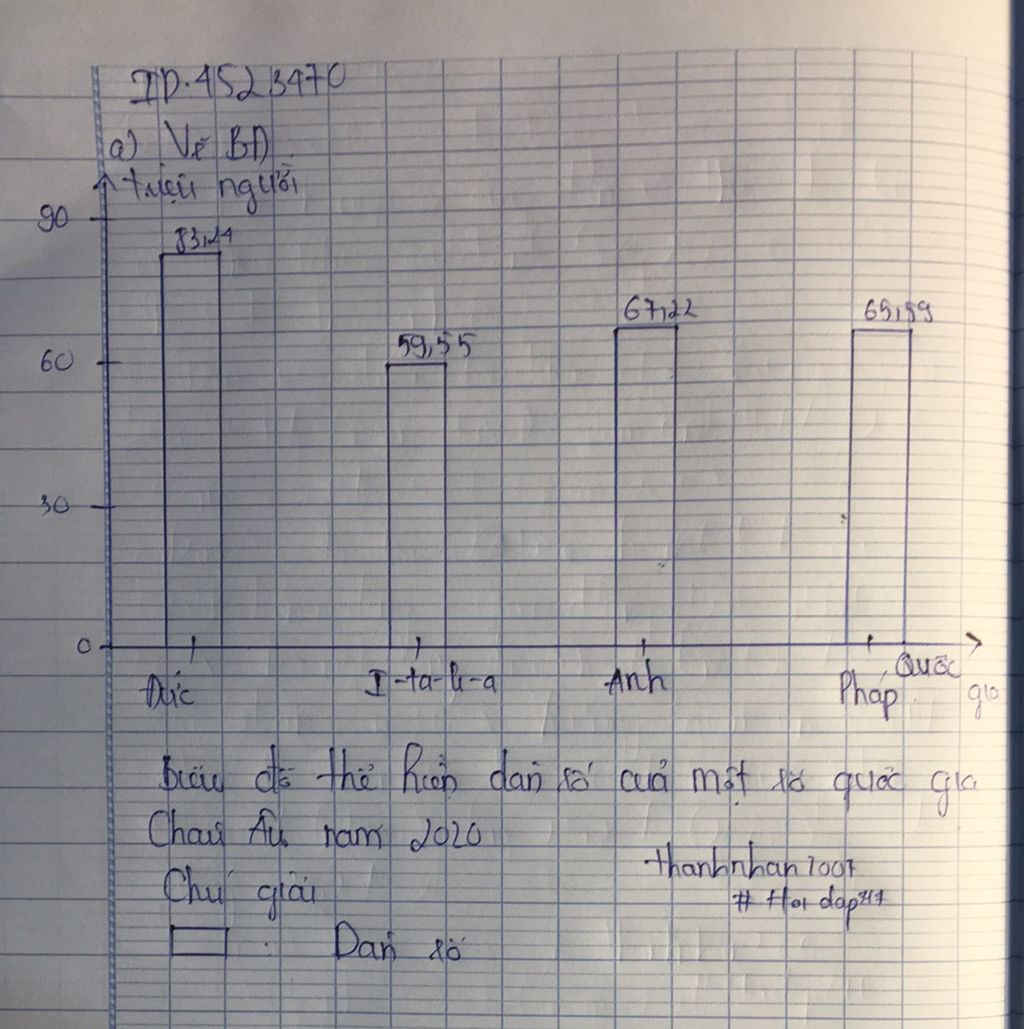 ID.4523470
a) Vẽ BĐ
triệu người
90
83,24
67,22
65,99
59,55
60
30
0
Đức
I-ta-li-a
Anh
Pháp
Quốc gia
Biểu đồ thể hiện dân số của một số quốc gia
Châu Âu năm 2020
Chú giải
thanhnhan2007
# Hoidap247
Dân số